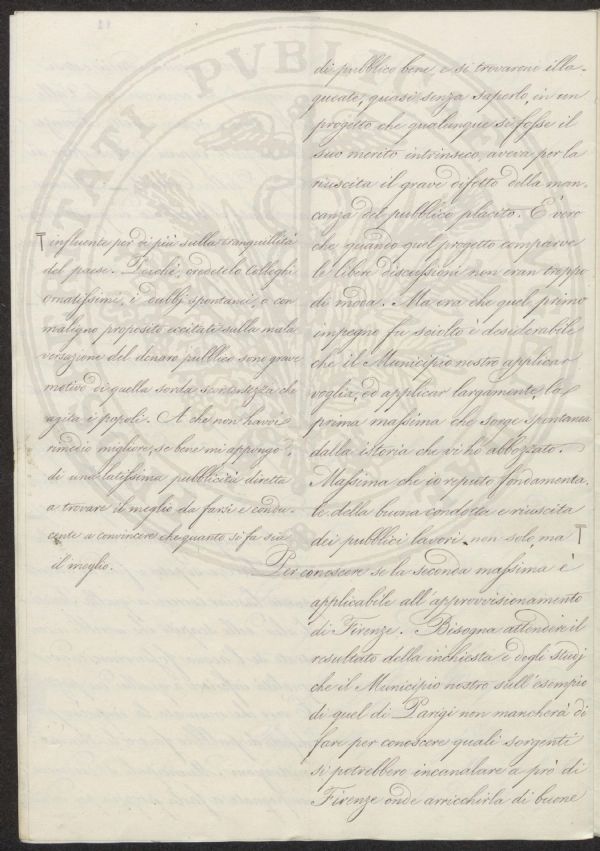 di pubblico bene, e si trovarono illa-
queate, quasi senza saperlo, in un
progetto che qualunque si fosse il
suo merito intrinseco, aveva per la
riuscita il grave difetto della man-
canza del pubblico placito. È vero
che quando quel progetto comparve
le libere discussioni non eran troppo
di moda. Ma ora che quel primo
impegno fu sciolto è desiderabile
che il Municipio nostro applicar
voglia, ed applicar largamente, la
prima massima che sorge spontanea
dalla istoria che vi ho abbozzato.
Massima che io reputo fondamenta-
le della buona condotta e riuscita
dei pubblici lavori non solo, ma T
T influente per di più sulla tranquillità
del paese. Perché, credetelo Colleghi
ornatissimi, i dubbj spontanei, o con
maligno proposito eccitati sulla mala
versazione del denaro pubblico sono grave
motivo di quella sorda scontentezza che
agita i popoli. A che non havvi
rimedio migliore, se bene mi appongo,
di una latissima pubblicità diretta
a trovare il meglio da farsi e condu-
cente a convincere che quanto si fa sia
il meglio.
Per conoscere se la seconda massima è
applicabile all'approvvisionamento
di Firenze. Bisogna attendere il
resultato della inchiesta e degli studj
che il Municipio nostro sull'esempio
di quel di Parigi non mancherà di
fare per conoscere quali sorgenti
si potrebbero incanalare a prò di
Firenze onde arricchirla di buone